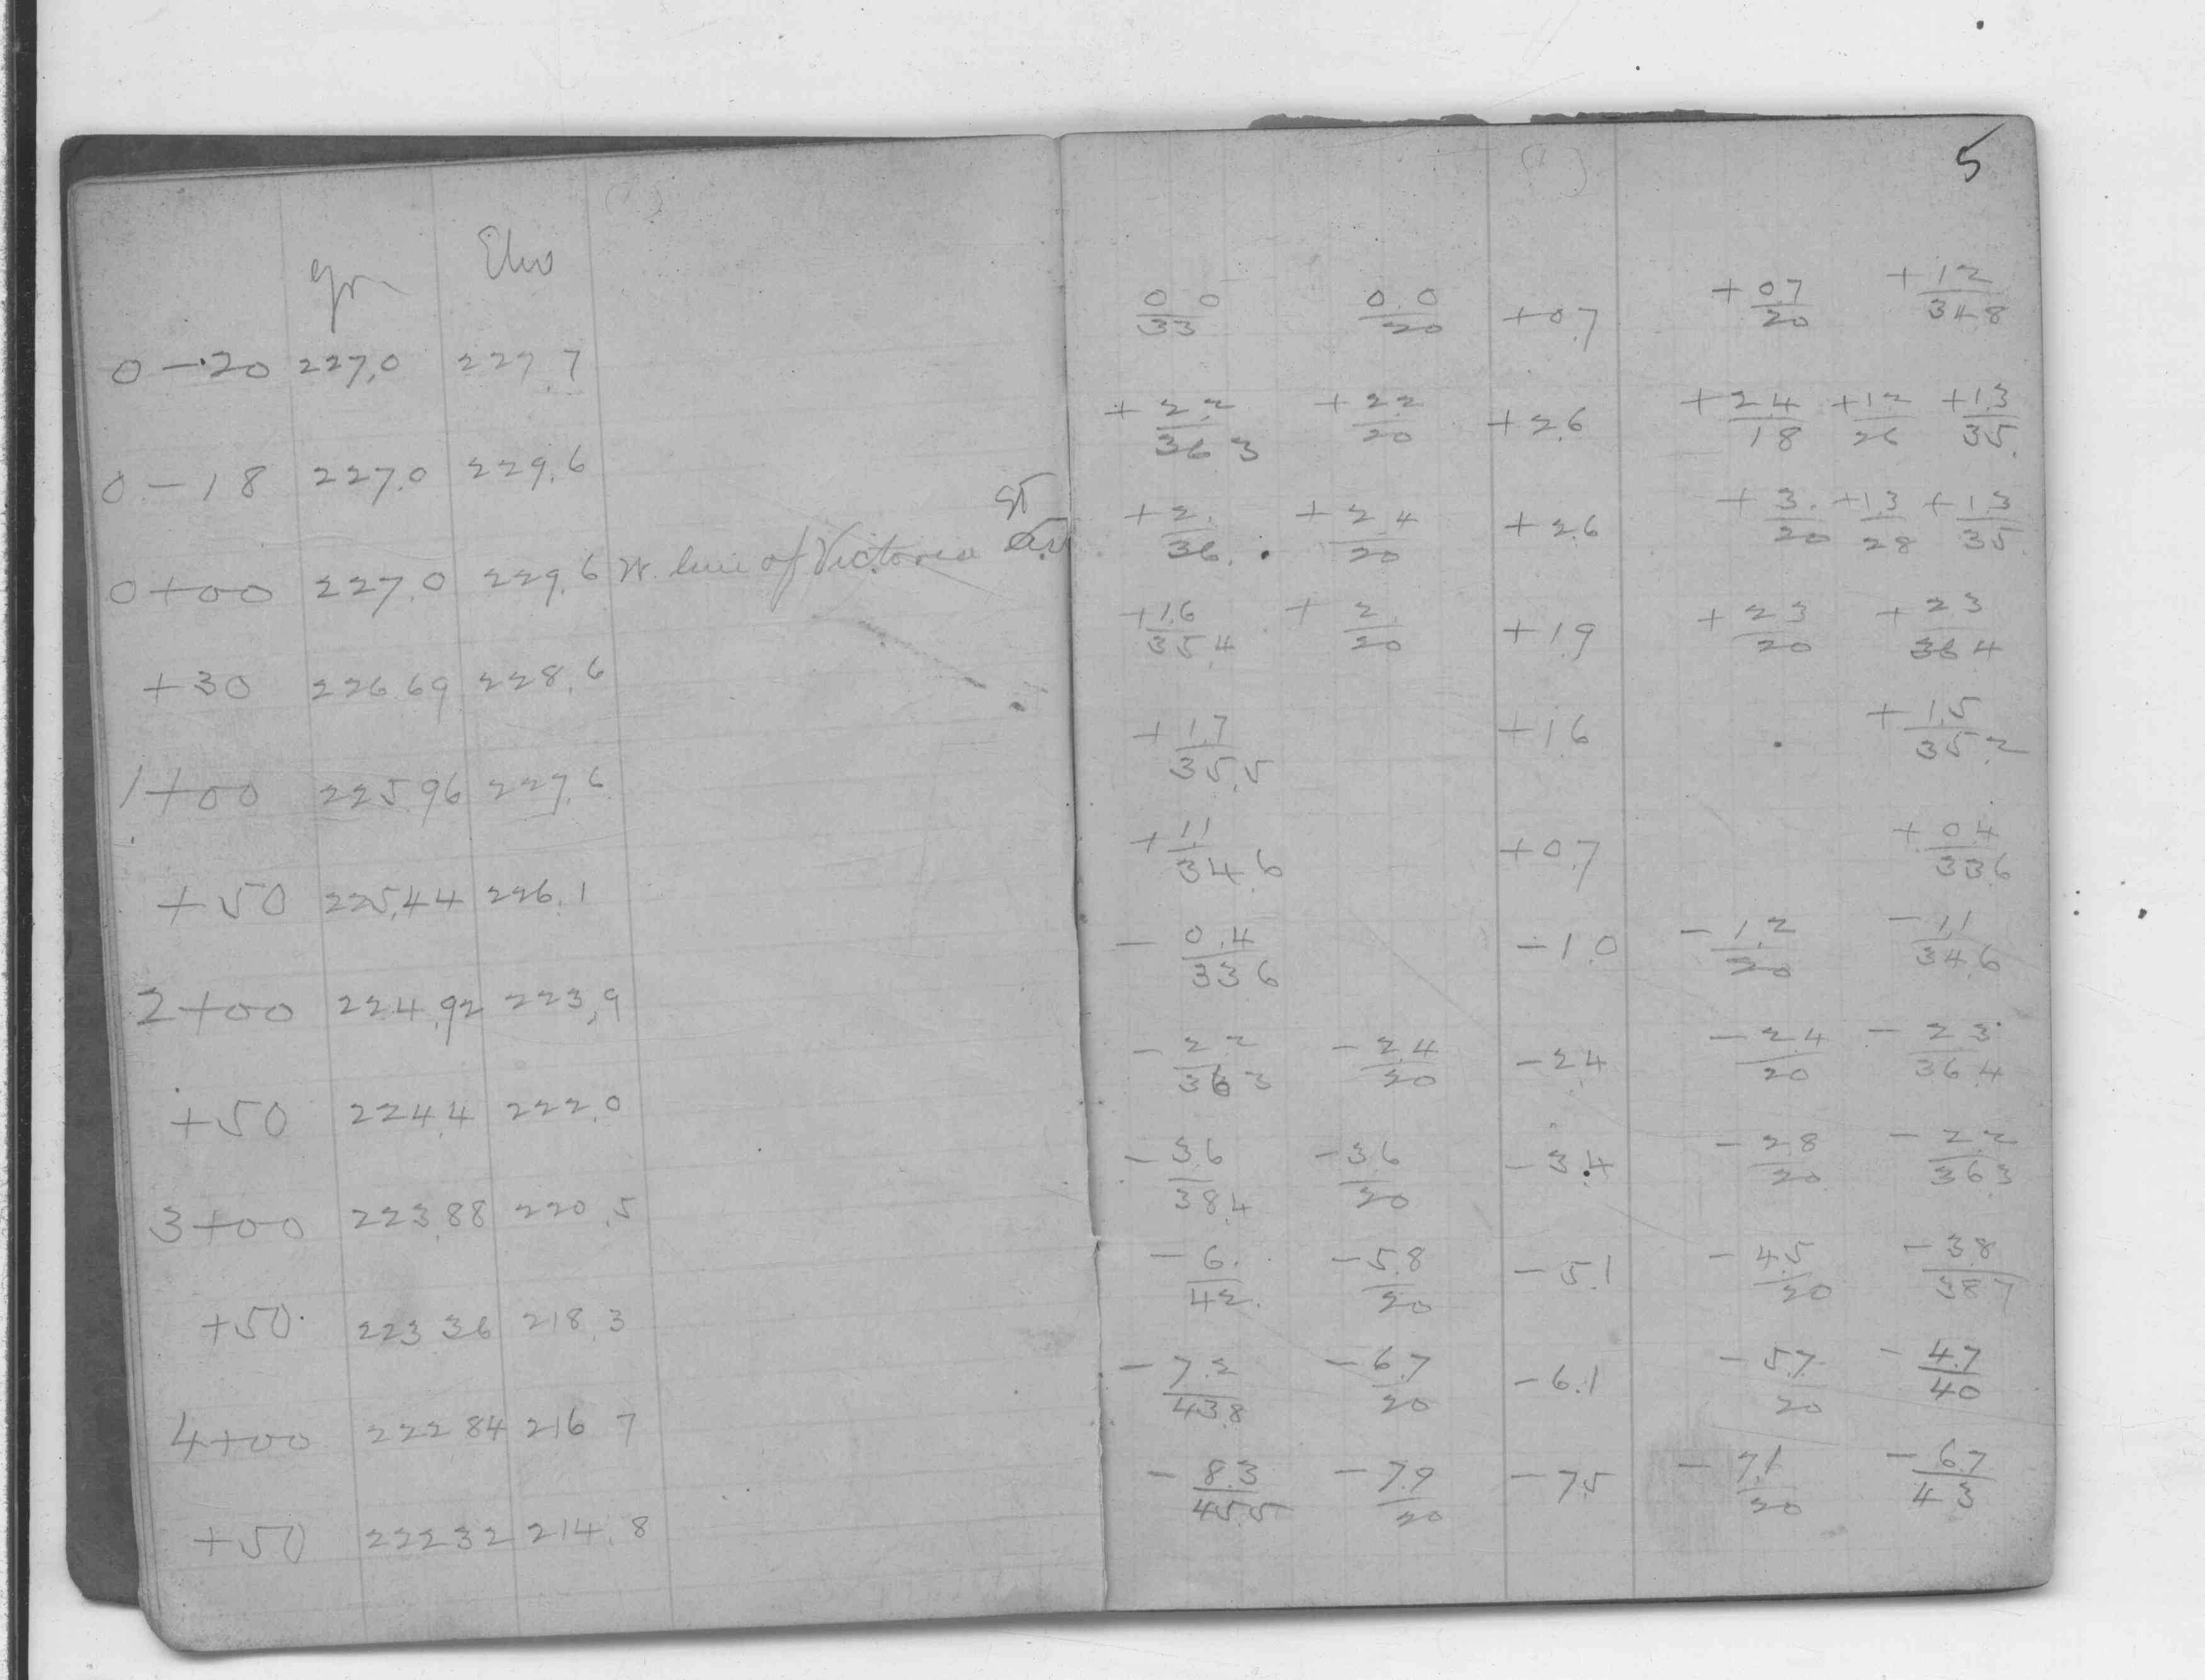 5
gr Elev
0-20 227.0 227.7
0-18 227.0 229.6
0+00 227.0 229.6 W. line of Victoria St
+30 226.69 228.6
1+00 225.96 227.6
+50 225.44 226.1
2+00 224.92 223.9
+50 224.4 222.0
3+00 223.88 220.5
+50 223.36 218.3
4+00 222.84 216.7
+50 222.32 214.8
0.0/33 0.0/20 +0.7 +0.7/20 +1.2/34.8
+2.2/36.3 +2.2/20 +2.6 +2.4/18 +1.2/26 +1.3/35.
+2./36. +2.4/20 +2.6 +3./20 +1.3/28 +1.3/35.
+1.6/35.4 +2./20 +1.9 +2.3/20 +2.3/36.4
+1.7/35.5 +1.6 +1.5/35.2
+1.1/34.6 +0.7 +0.4/33.6
-0.4/33.6 -1.0 -1.2/20 -1.1/34.6
-2.2/36.3 -2.4/20 -2.4 -2.4/20 -2.3/36.4
-3.6/38.4 -3.6/20 -3.4 -2.8/20 -2.2/36.3
-6./42. -5.8/20 -5.1 -4.5/20 -3.8/38.7
-7.2/43.8 -6.7/20 -6.1 -5.7/20 -4.7/40
-8.3/45.5 -7.9/20 -7.5 -7.1/20 -6.7/43